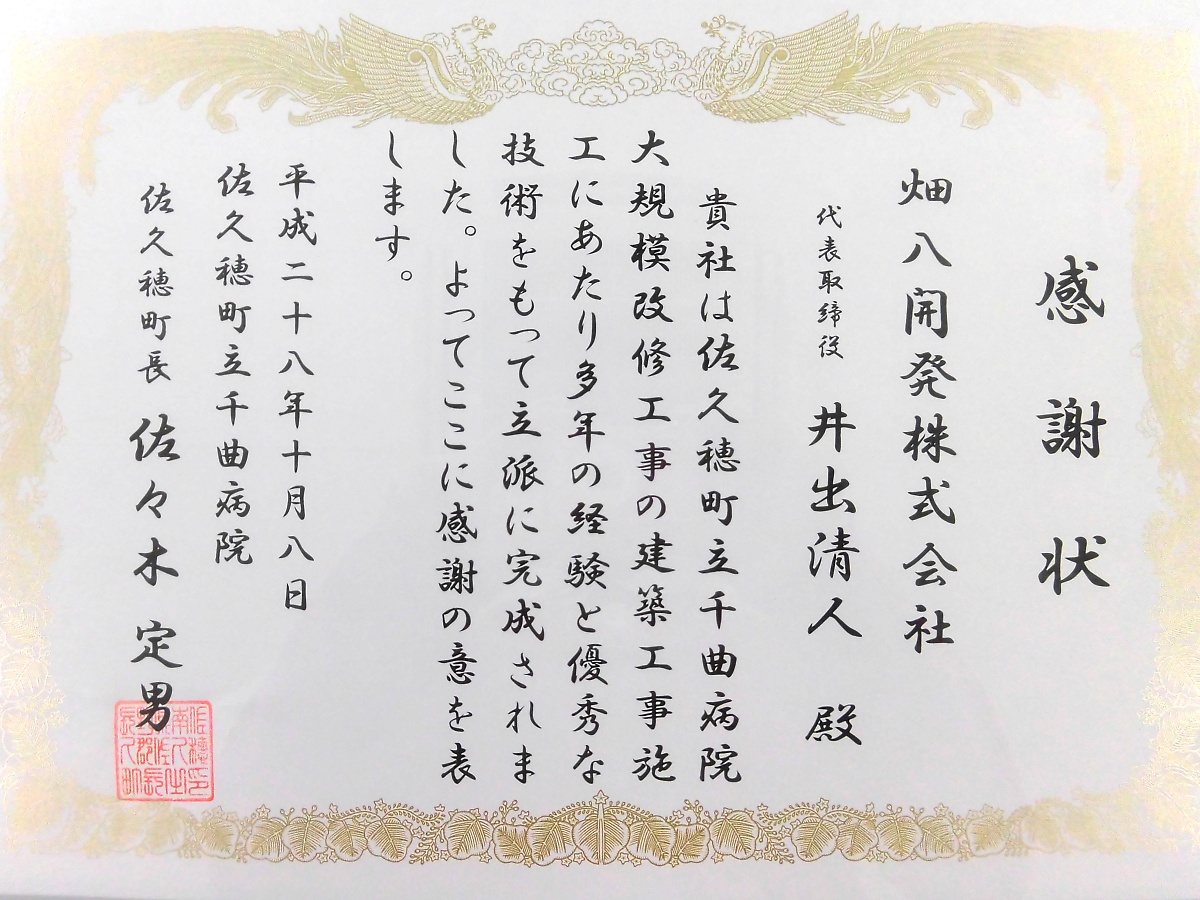 感謝状
畑八開発株式会社
代表取締役 井出清人 殿
貴社は佐久穂町立千曲病院
大規模改修工事の建築工事施
工にあたり多年の経験と優秀な
技術をもって立派に完成されま
した。よってここに感謝の意を表
します。
平成二十八年十月八日
佐久穂町立千曲病院
佐久穂町長 佐々木定男